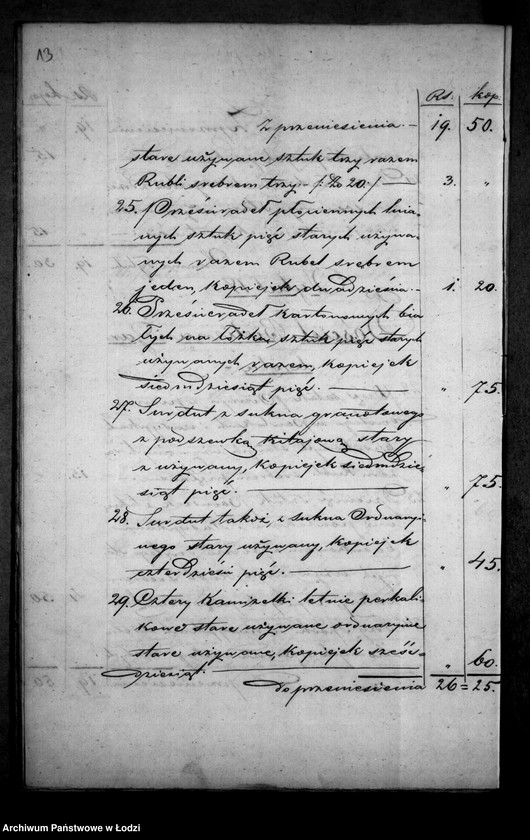 13
Rs. kop.
Z przeniesienia.— 19. 50.
stare używane sztuk trzy razem
Rubli srebrem trzy — /: Rs 20:/ — 3. "
25. Prześcieradeł płóciennych lnia-
nych sztuk pięć starych używa-
nych razem Rubel srebrem
jeden, kopiejek dwadzieścia.— 1. 20.
26. Prześcieradeł kartonowych bia-
łych na łóżka, sztuk pięć starych
używanych, razem, kopiejek
siedmdziesiąt pięć. — " 75.
27. Surdut z sukna granatowego
z podszewką kitajową, stary
z używany, kopiejek siedmdzie-
siąt pięć. — " 75.
28. Surdut takoż, z sukna Ordynaryj-
nego stary używany, kopiejek
czterdzieści pięć. — " 45.
29. Cztery Kamizelki letnie perkali-
kowe stare używane ordynaryjne
stare używane, kopiejek sześć-
dziesiąt. " 60.
do przeniesienia 26 = 25.
Archiwum Państwowe w Łodzi